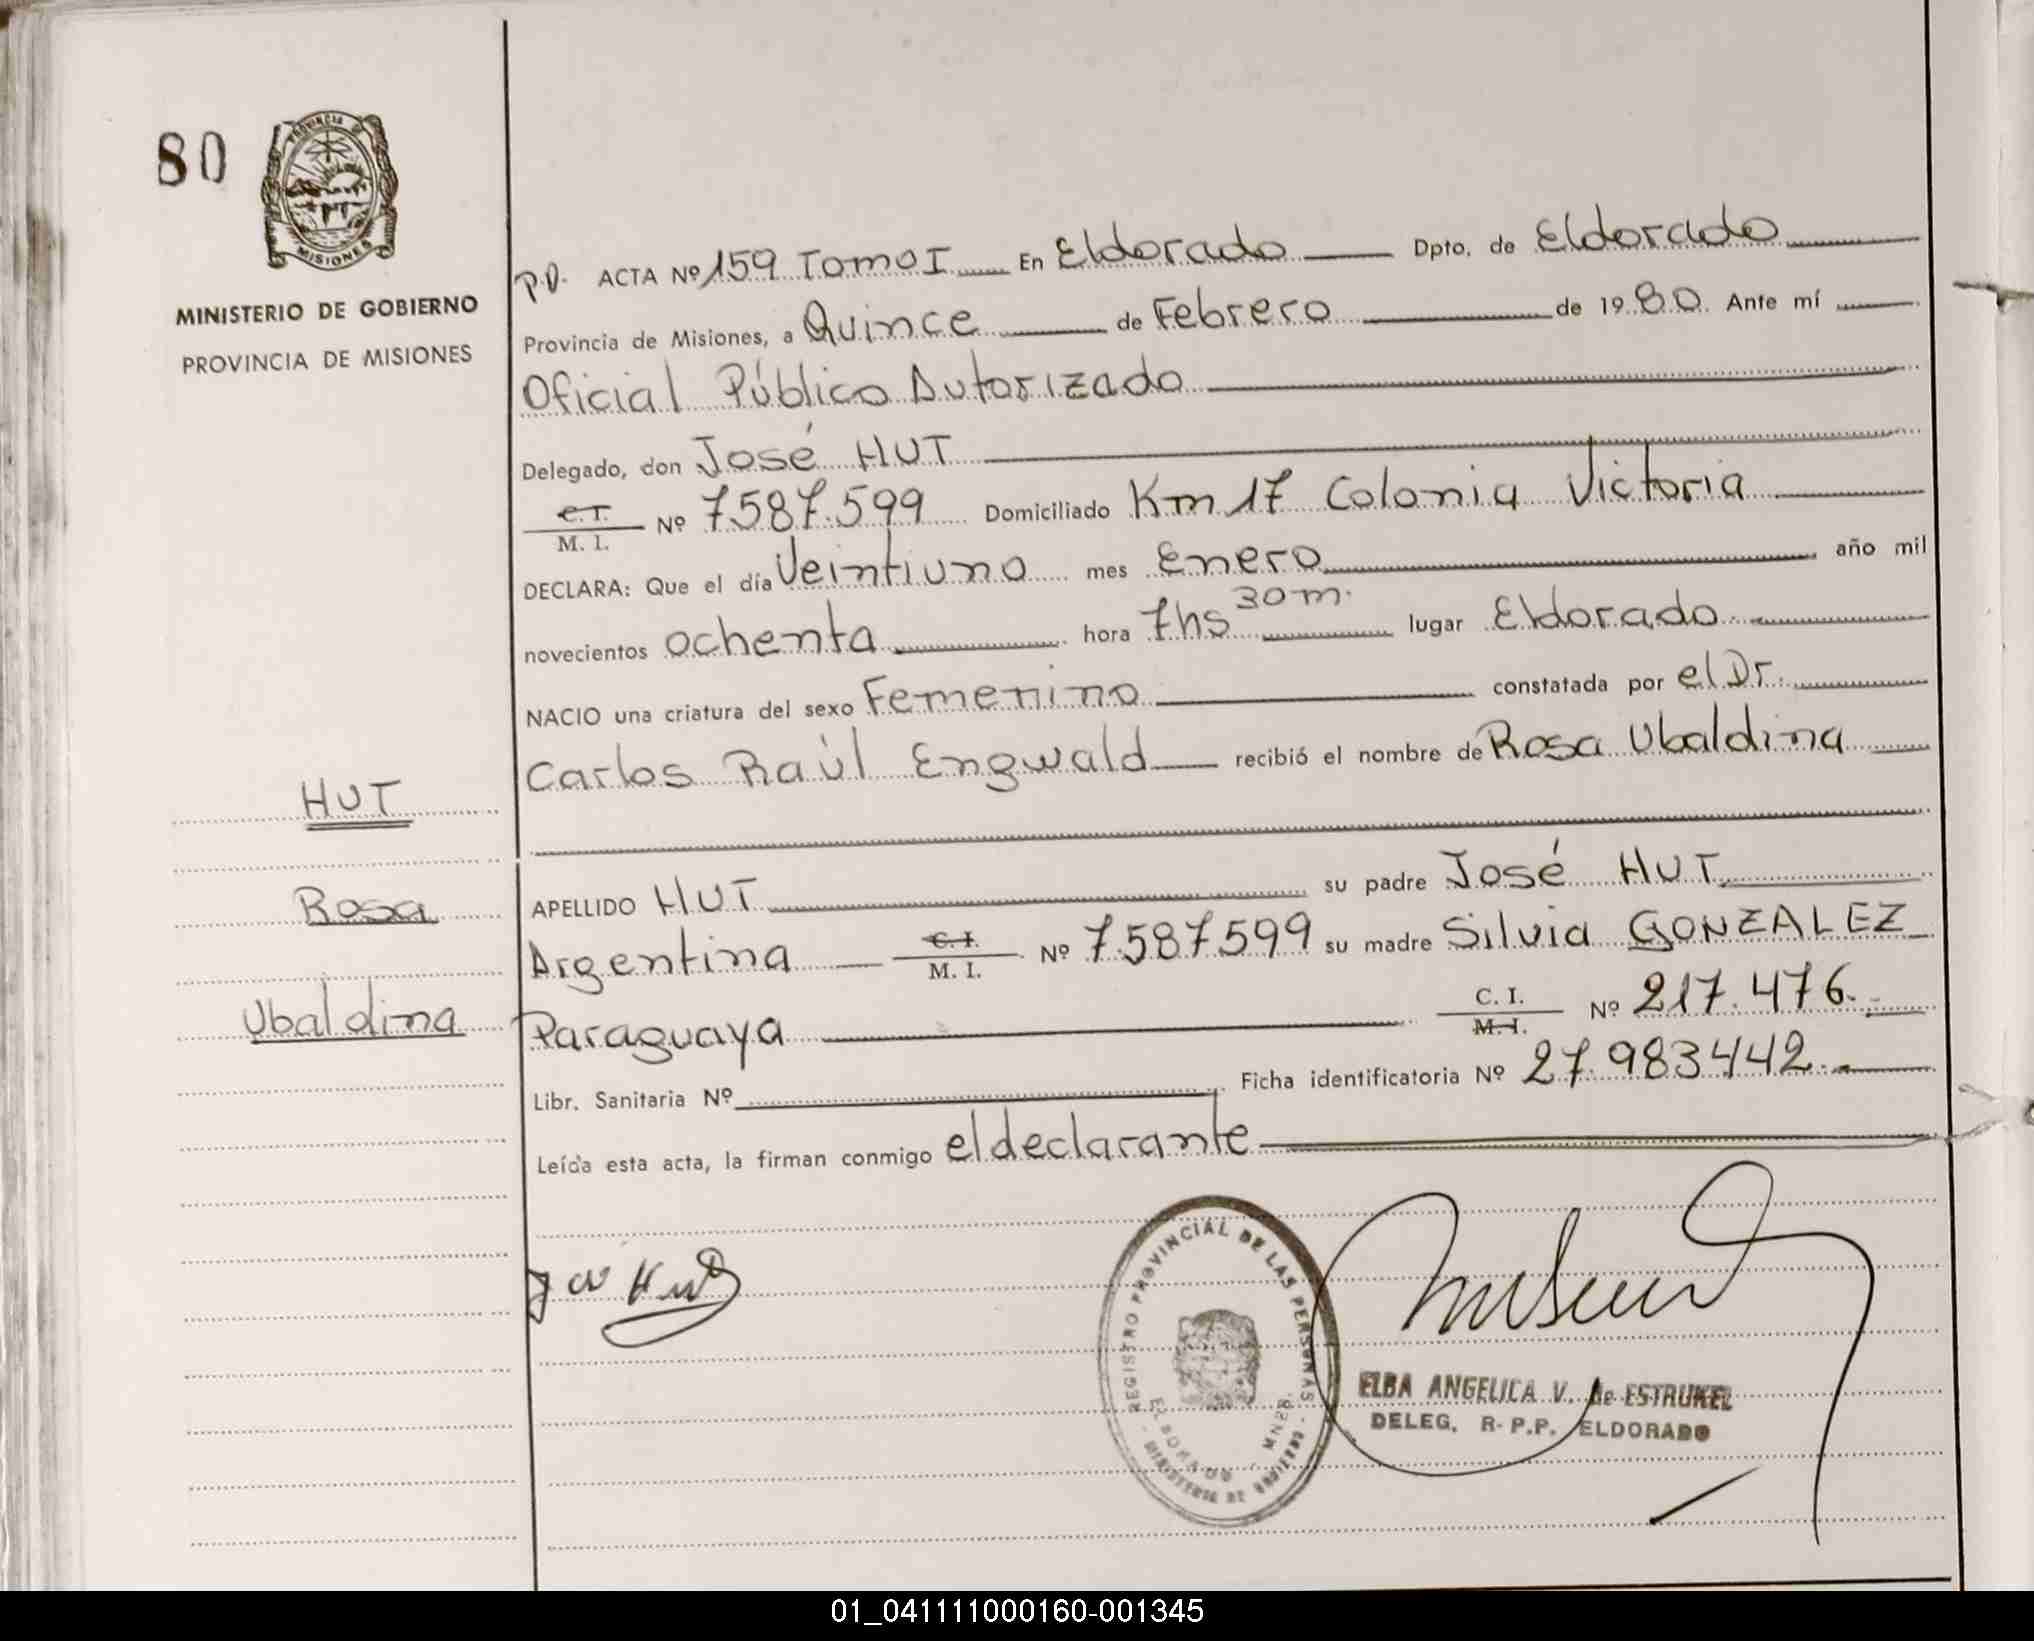 80
PROVINCIA DE
MISIONES
MINISTERIO DE GOBIERNO
PROVINCIA DE MISIONES
P.D. ACTA Nº 159 Tomo I En Eldorado Dpto. de Eldorado
Provincia de Misiones, a Quince de Febrero de 1980. Ante mí
Oficial Público Autorizado
Delegado, don José HUT
C.I. / M. I. Nº 7.587.599 Domiciliado Km 17 Colonia Victoria
DECLARA: Que el día Veintiuno mes Enero año mil
novecientos ochenta hora 7hs 30m. lugar Eldorado
NACIO una criatura del sexo Femenino constatada por el Dr.
Carlos Raúl Engwald recibió el nombre de Rosa Ubaldina
HUT
Rosa
Ubaldina
APELLIDO HUT su padre José HUT
Argentina C.I. / M. I. Nº 7.587.599 su madre Silvia GONZALEZ
Paraguaya C. I. / M.I. Nº 217.476.
Libr. Sanitaria Nº Ficha identificatoria Nº 27.983.442.
Leída esta acta, la firman conmigo el declarante
REGISTRO PROVINCIAL DE LAS PERSONAS
ELDORADO MNES.
MINISTERIO DE GOBIERNO
ELBA ANGELICA V. de ESTRUKEL
DELEG. R.P.P. ELDORADO
01_041111000160-001345